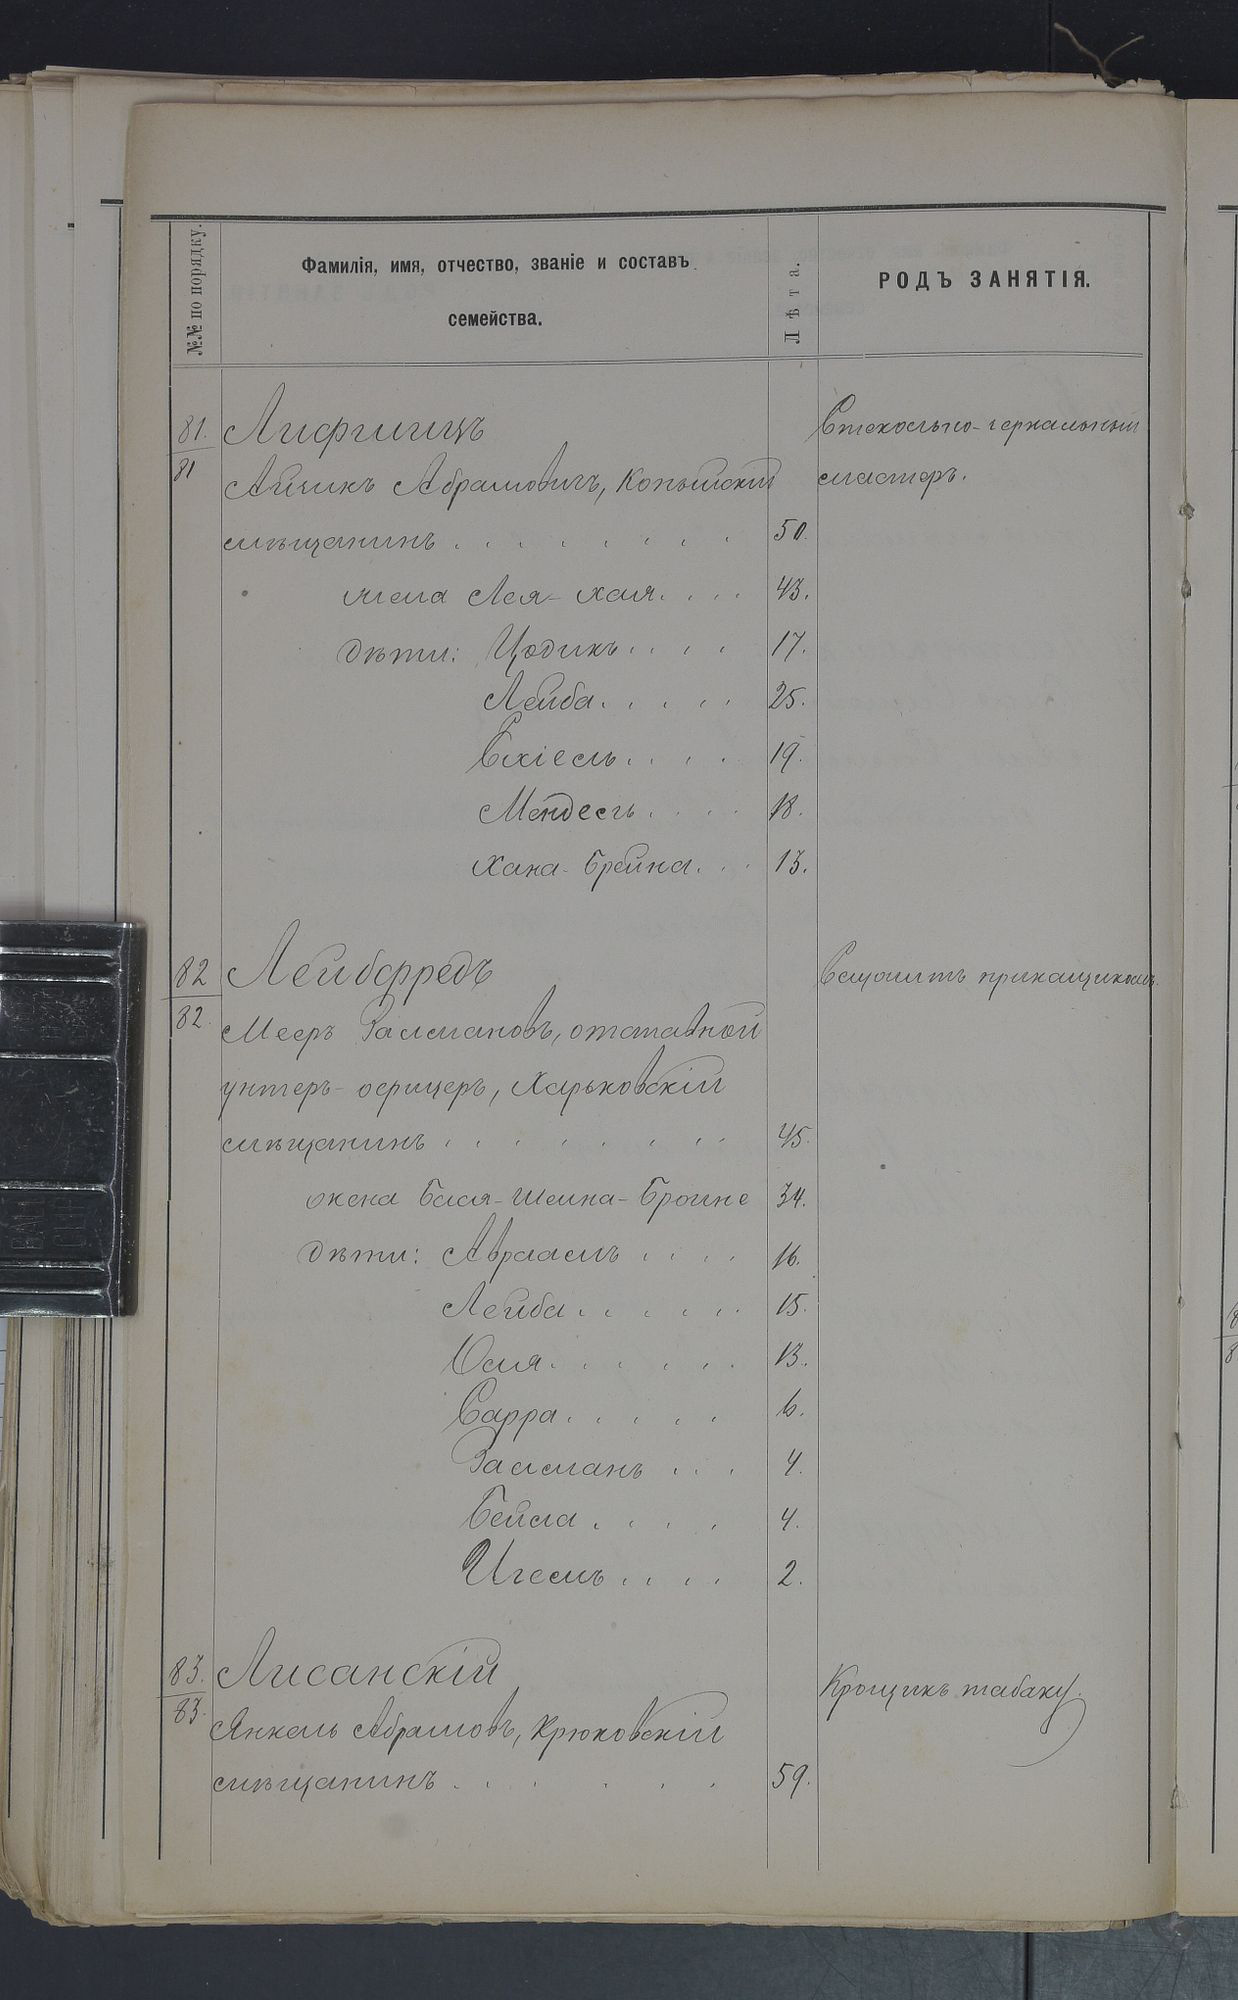 №№ по порядку.
Фамилія, имя, отчество, званіе и составъ
семейства.
Лѣта.
РОДЪ ЗАНЯТІЯ.
81. Лифшицъ
Стекольно-зеркальный
81 Айзикъ Абрамовичъ, Копысскій
мастеръ.
мѣщанинъ . . . . . . . . 50.
жена Лея-Хая. . . . 43.
дѣти: Цодикъ . . . . 17.
Лейба. . . . . 25.
Ехіель. . . . 19.
Мендель. . . . 18.
Хана-Брейна. . . 13.
82 Лейбфредъ
Служитъ прикащикомъ.
82. Мееръ Залмановъ, отставной
унтеръ-офицеръ, Харьковскій
мѣщанинъ . . . . . . . . 45.
жена Бася-Шейна-Броине 34.
дѣти: Авраамъ . . . . 16.
Лейба. . . . . . 15.
Юлія. . . . . . 13.
Сарра. . . . . 6.
Залманъ . . . 4.
Бейла . . . . 4.
. . . . 2.
83. Лисанскій
Крощикъ табаку.
83. Янкель Абрамовъ, Крюковскій
мѣщанинъ . . . . . . 59.